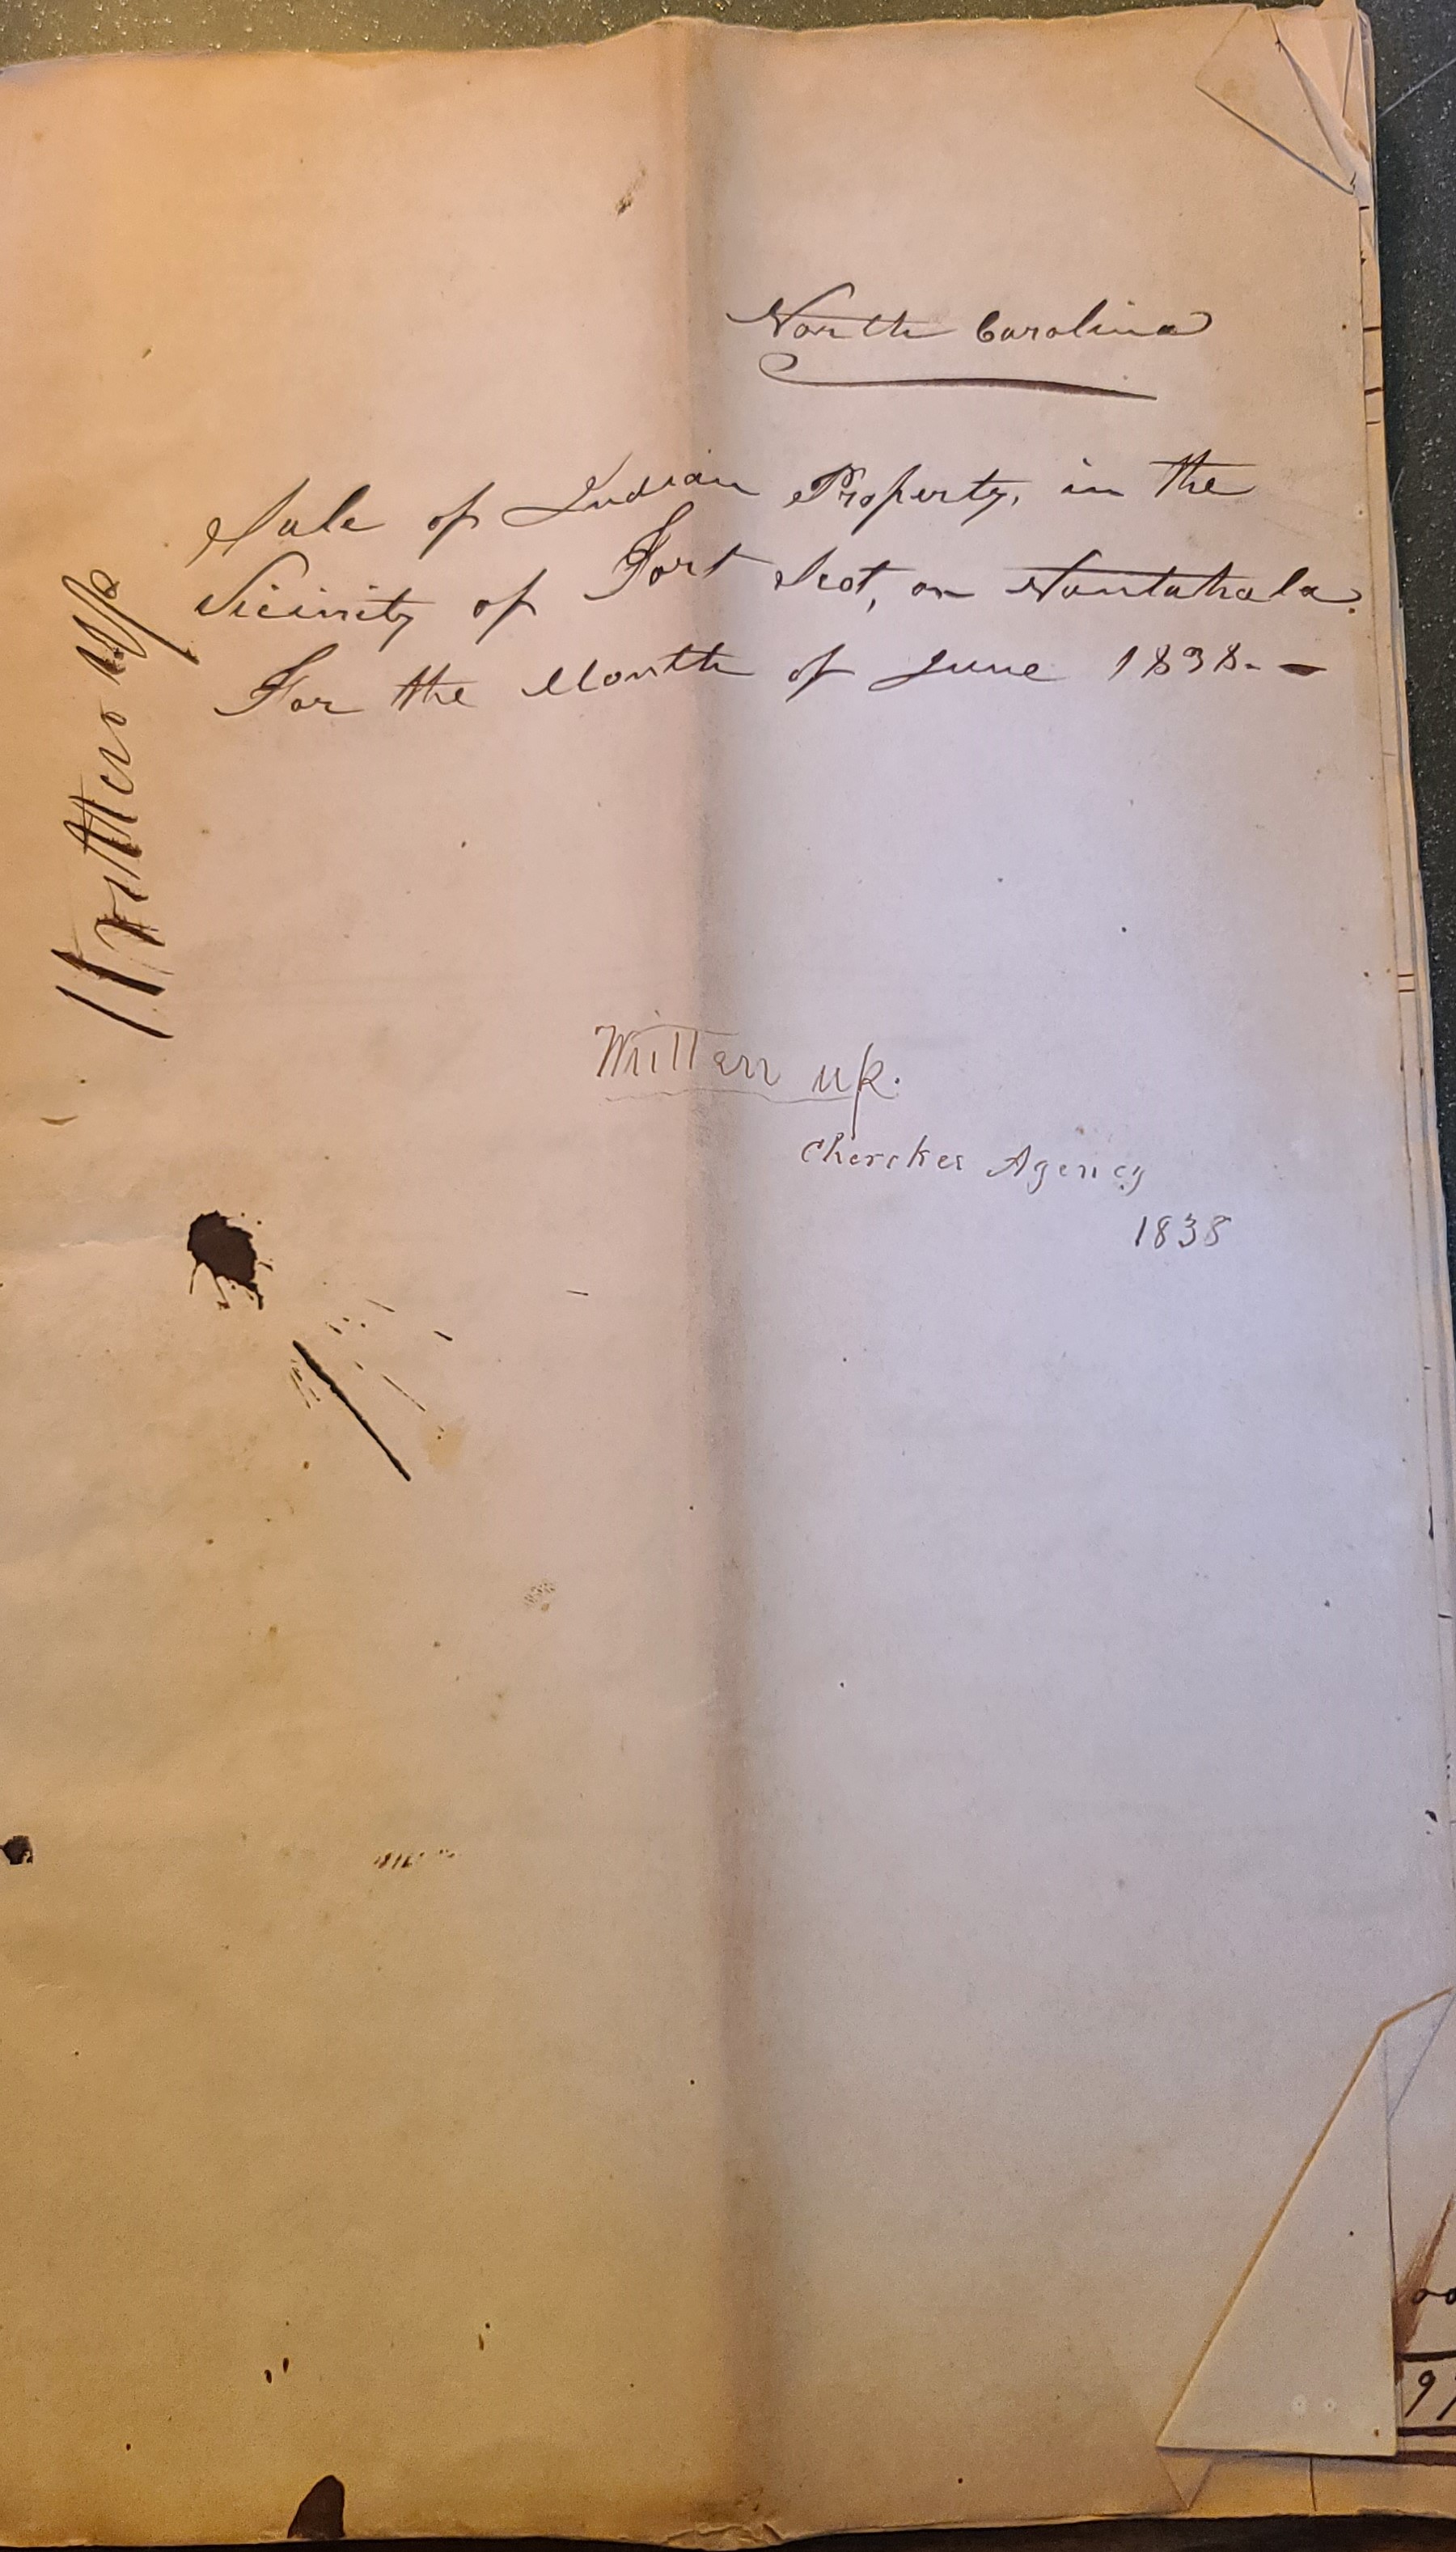 North Carolina
Sale of Indian Property, in the
Vicinity of Fort Scot, on Nantahala.
For the Month of June 1838.-
Written Up
Written up.
Cherokee Agency
1838